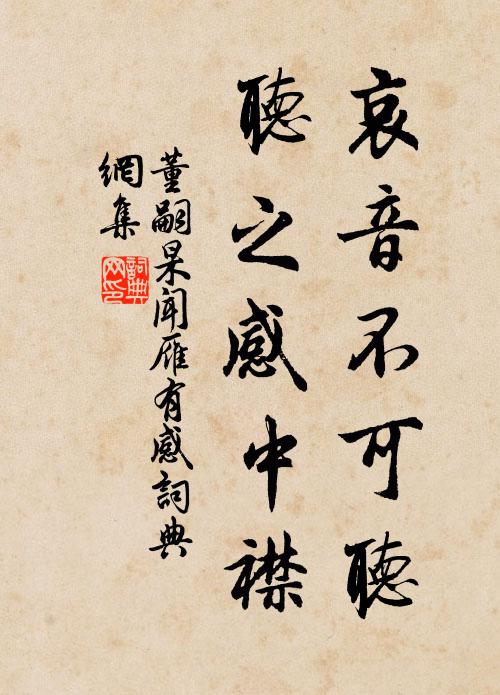 哀音不可聽
聽之感中襟
董嗣杲聞雁有感詞典
網集
詞典網印